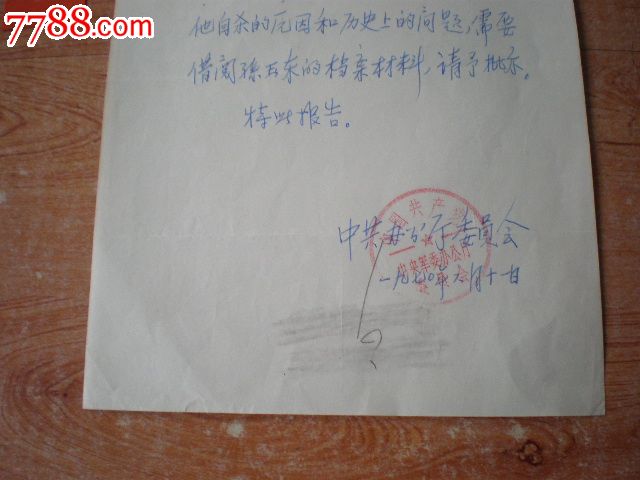 7788.com
他自杀的原因和历史上的问题,需要
借阅孙五东的档案材料,请予批示。
特此报告。
中国共产党
中共办公厅委员会
中央军委办公厅
一九七〇年六月十一日